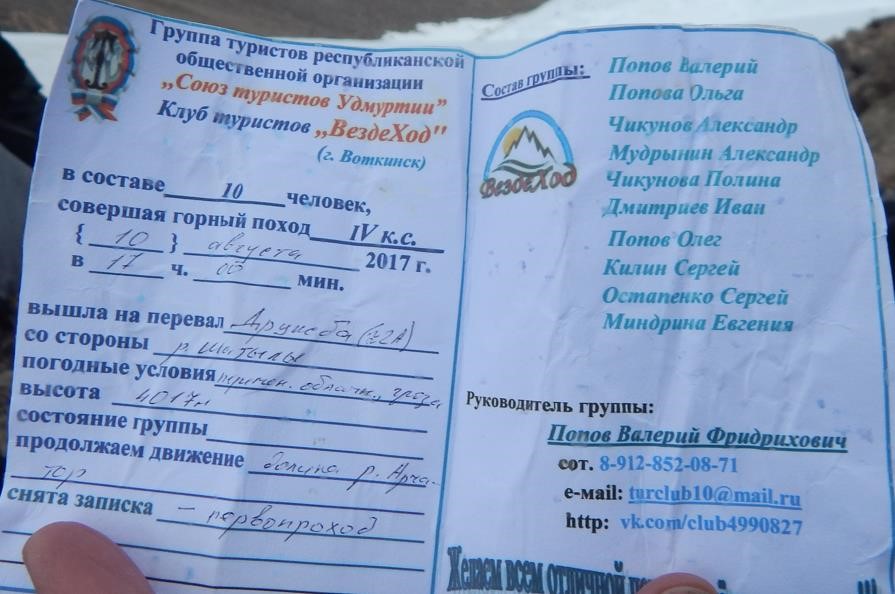 Группа туристов республиканской
общественной организации
„Союз туристов Удмуртии"
Клуб туристов „ВездеХод"
(г. Воткинск)
в составе 10 человек,
совершая горный поход IV к.с.
{ 10 } августа 2017 г.
в 17 ч. 00 мин.
вышла на перевал Дружба (2А)
со стороны р. Шатылы
погодные условия перемен. облачн., гроза
высота 4017м
состояние группы
продолжаем движение долина р. Арча-
тор
снята записка – первопроход
Состав группы:
Попов Валерий
Попова Ольга
Чикунов Александр
Мудрынин Александр
Чикунова Полина
Дмитриев Иван
Попов Олег
Килин Сергей
Остапенко Сергей
Миндрина Евгения
ВездеХод
Руководитель группы:
Попов Валерий Фридрихович
сот. 8-912-852-08-71
e-мail: turclub10@mail.ru
http: vk.com/club4990827
Желаем всем отличной !!!